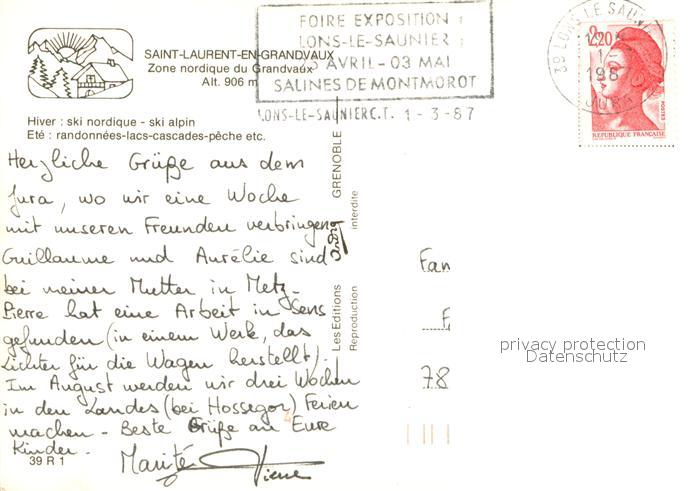 SAINT-LAURENT-EN-GRANDVAUX
Zone nordique du Grandvaux
Alt. 906 m
Hiver : ski nordique - ski alpin
Eté : randonnées-lacs-cascades-pêche etc.
FOIRE EXPOSITION
LONS-LE-SAUNIER
AVRIL - 03 MAI
SALINES DE MONTMOROT
LONS-LE-SAUNIER C.T. 1-3-87
39 LONS LE SAUN
1987
JURA
2,20
POSTES
REPUBLIQUE FRANÇAISE
Herzliche Grüße aus dem
Jura, wo wir eine Woche
mit unseren Freunden verbringen.
Guillaume und Aurélie sind
bei meiner Mutter in Metz.
Pierre hat eine Arbeit in Sens
gefunden (in einem Werk, das
Lichter für die Wagen herstellt).
Im August werden wir drei Wochen
in den Landes (bei Hossegor) Ferien
machen - Beste Grüße an Eure
Kinder.
Marité Pierre
39 R 1
Les Editions André GRENOBLE
Reproduction interdite
Fan
F
78
privacy protection
Datenschutz